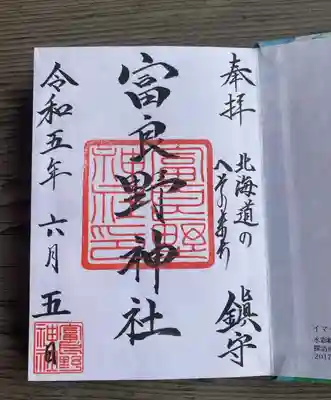 奉拝
北海道の
へその鎮守
富良野神社
富良野
神社印
令和五年 六月 五日
富良野
神社
イマ
水彩
2017